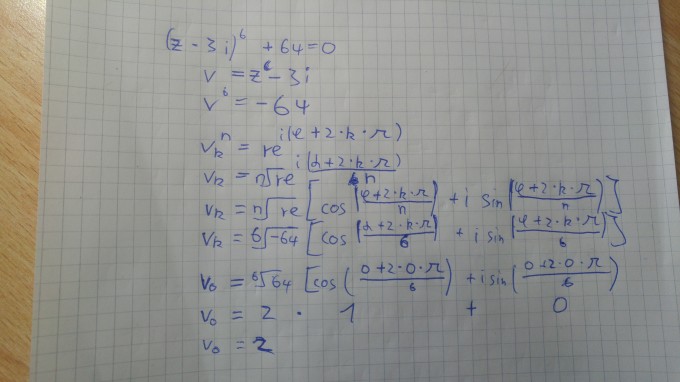 (z - 3i)^6 + 64 = 0
v = z^6 - 3i
v^6 = -64
v_k^n = re^{i(φ + 2·k·π)}
v_k = n√re^{i(α + 2·k·π)/n}
v_k = n√re [cos(φ+2·k·π/n) + i sin(φ+2·k·π/n)]
v_k = 6√-64 [cos(α+2·k·π/6) + i sin(φ+2·k·π/6)]
v_0 = 6√64 [cos(0+2·0·π/6) + i sin(0+2·0·π/6)
v_0 = 2 · 1 + 0
v_0 = 2